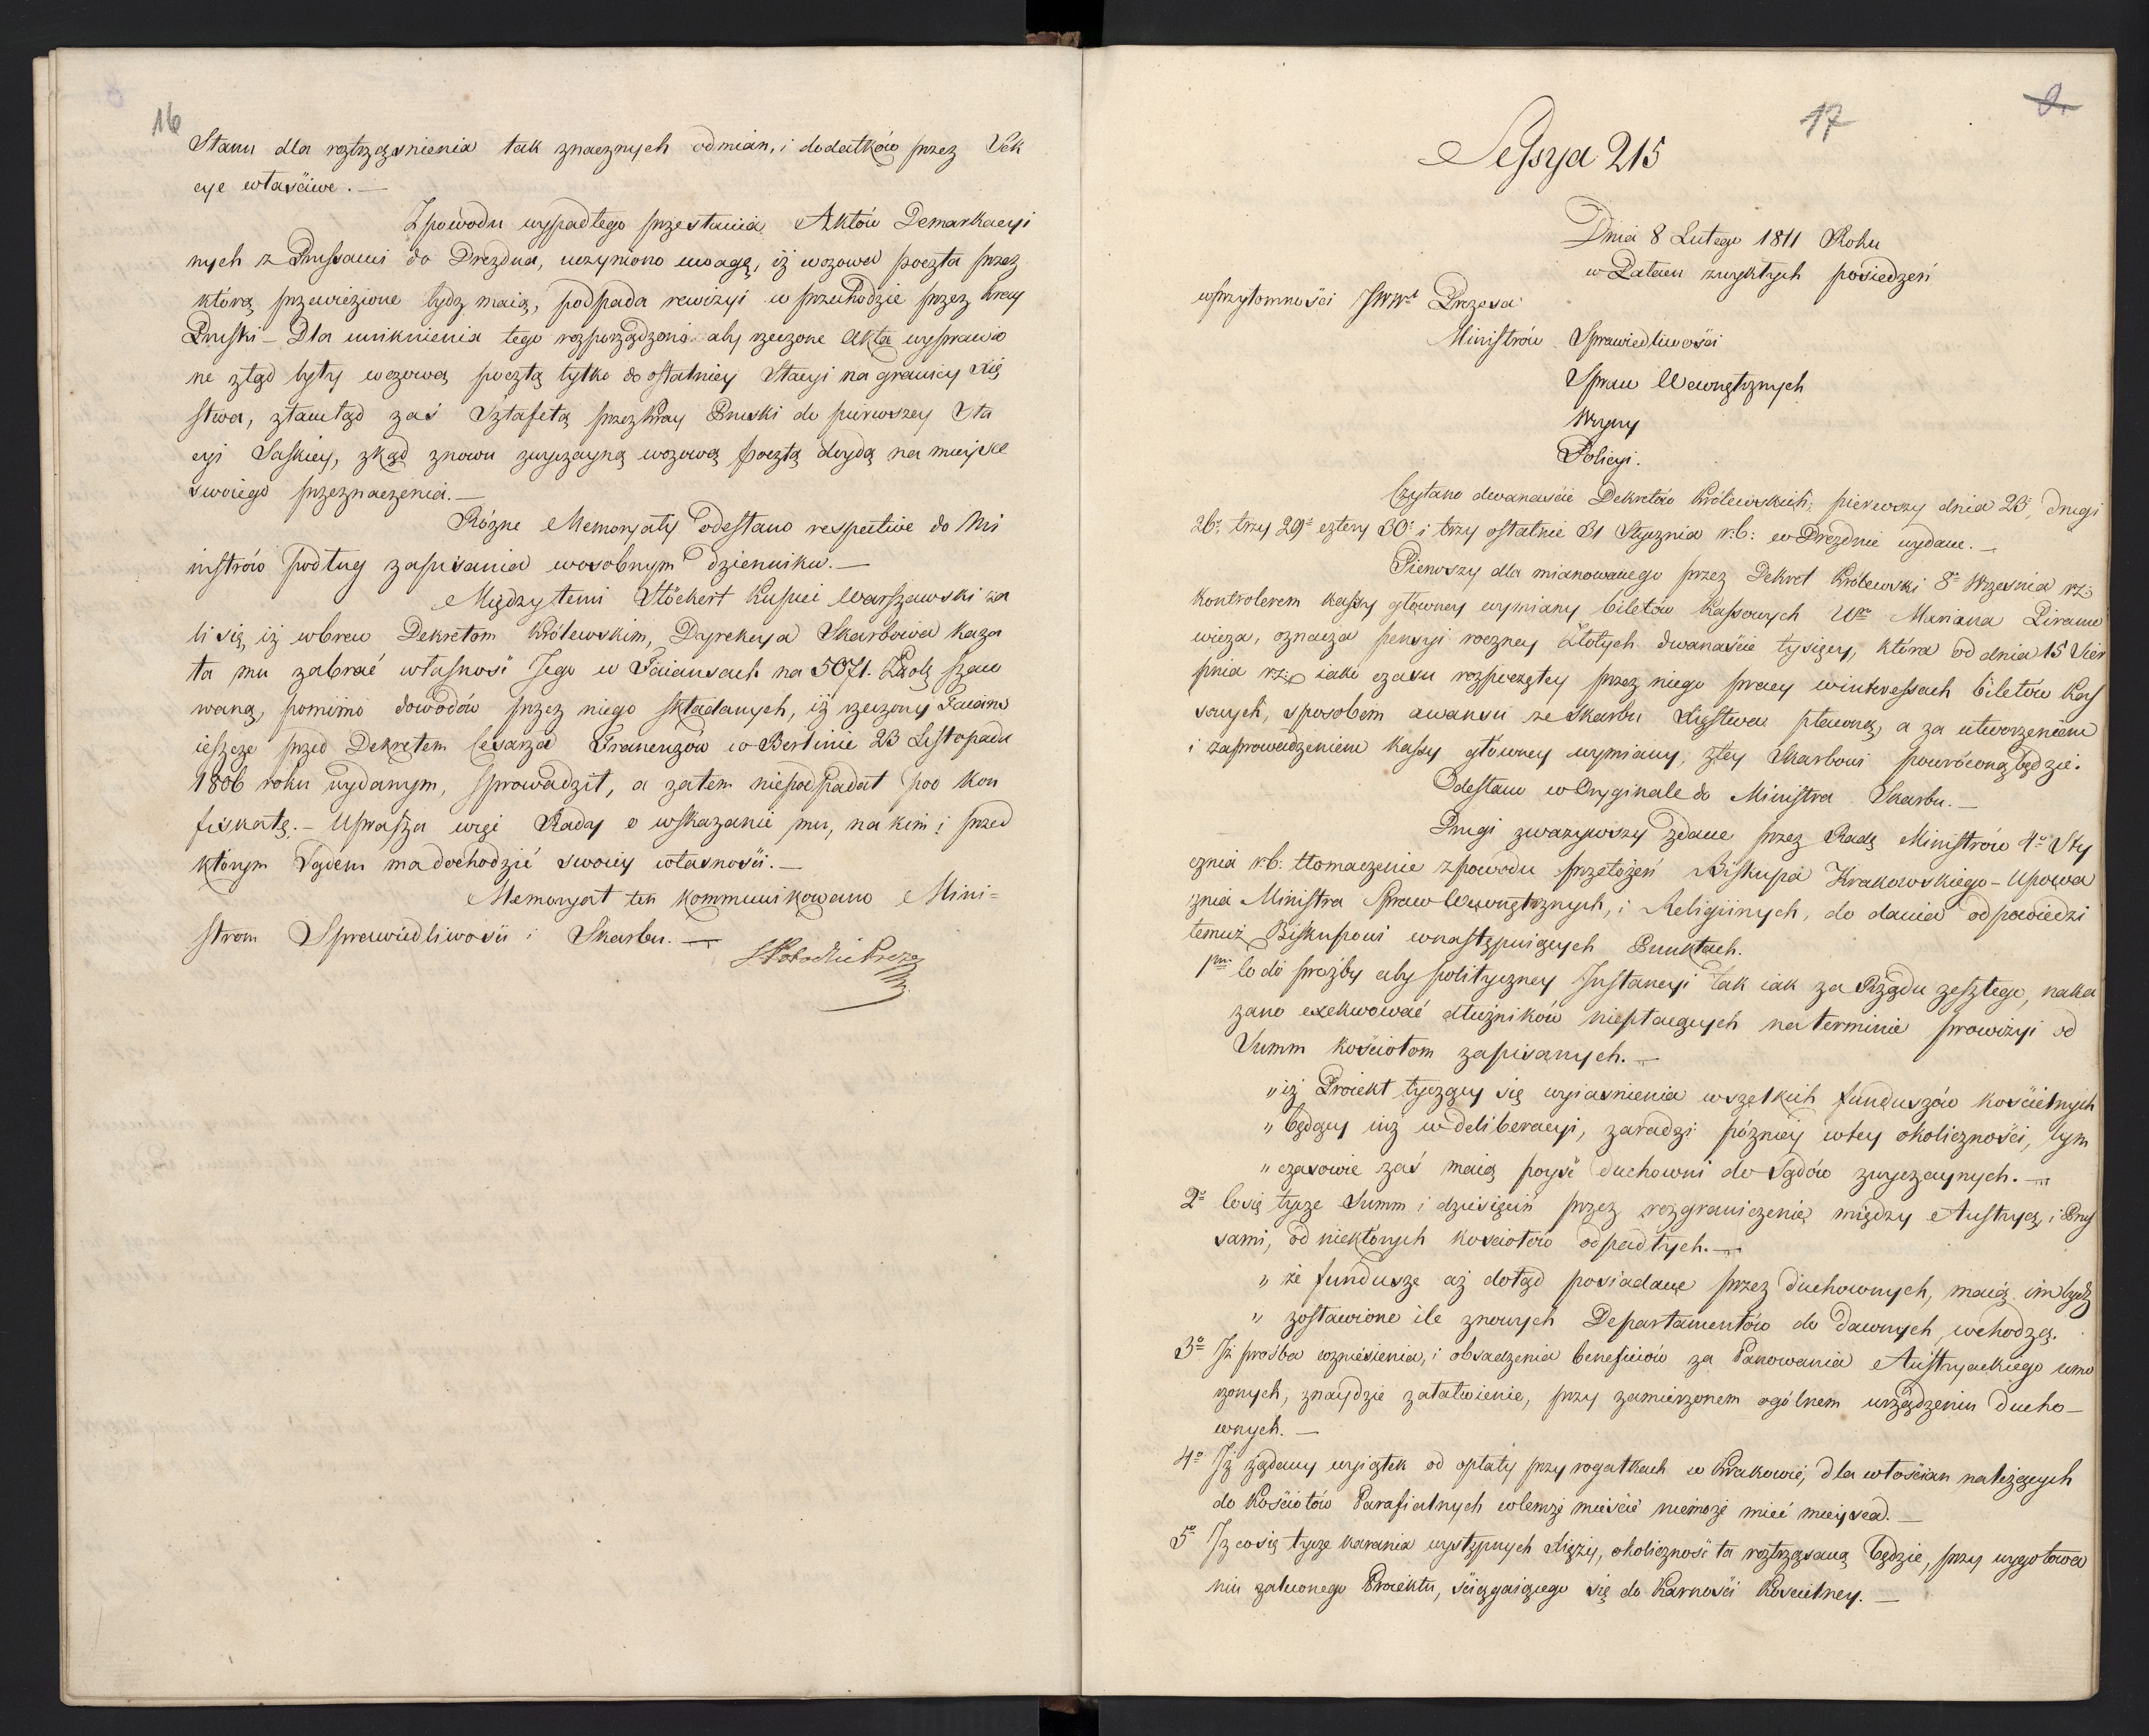 16
Stanu dla roztrząśnienia tak znacznych odmian, i dodatków przez Sek
cye właściwe. —
Zpowodu wypadłego przesłania Aktów Demarkacyi
nych z Prussami do Drezdna, uczyniono uwagę, iż wozowa poczta przez
którą przewiezione bydz maią, podpada rewizyi w przechodzie przez kray
Pruski – Dla uniknienia tego rozporządzono aby rzeczone Akta wyprawio
ne ztąd były wozową pocztą tylko do ostatniey Stacyi na granicy Xię
stwa, ztamtąd zaś Sztafetą przez Kray Pruski do pierwszey Sta
cyi Saskiey, zkąd znowu zwyczayną wozową pocztą dóydą na mieysce
swoiego przeznaczenia. —
Różne Memoryały odesłano respective do Mi
nistrów podług zapisania wosobnym dzienniku. —
Między temi Stöckert Kupiec Warszawski ża
li się, iż wbrew Dekretom Królewskim, Dyrekcya Skarbowa kaza
ła mu zabrać własność Jego w Faiansach na 5071. szaco
waną, pomimo dowodów przez niego składanych, iż rzeczony Faians
ieszcze przed Dekretem Cesarza Francuzów w Berlinie 23 Listopada
1806 roku wydanym, sprowadził, a zatem niepodpadał pod kon
fiskatę. – Uprasza więc Rady o wskazanie mu, na kim i przed
którym Sądem ma dochodzić swoiey własności. —
Memoryał ten kommunikowano Mini=
strom Sprawiedliwości i Skarbu. —
17
9.
Sessya 215
Dnia 8 Lutego 1811 Roku
w Pałacu zwykłych posiedzeń
wprzytomności JWWch Prezesa
Ministrów Sprawiedliwości
Spraw Wewnętrznych
Woyny
Policyi.
Czytano dwanaście Dekretów Królewskich, pierwszy dnia 23, drugi
26o, trzy 29o cztery 30o i trzy ostatnie 31 Stycznia r: b: w Dreznie wydane. —
Pierwszy dla mianowanego przez Dekret Królewski 8o Września r. z:
Kontrolerem kassy główney wymiany biletów kassowych Ugo Mariana Piramo
wicza, oznacza pensyi roczney Złotych dwanaście tysięcy, która od dnia 15 Sier
pnia r. z: iako czasu rozpoczętey przez niego pracy winteressach biletów kas
sowych, sposobem awansu ze Skarbu Xięstwa płacona, a za utworzeniem
i zaprowadzeniem kassy główney wymiany, ztey Skarbowi powróconą będzie.
Odesłano w Oryginale do Ministra Skarbu. —
Drugi zważywszy zdane przez Radę Ministrów 4o Sty
cznia r b: tłomaczenie zpowodu przełożeń Biskupa Krakowskiego – Upowa
żnia Ministra Spraw Wewnętrznych, i Religiinych, do dania odpowiedzi
temuż Biskupowi wnastępuiących Punktach.
1mo Co do prożby aby polityczney Instancyi tak iak za Rządu zeszłego, naka
zano exekwować dłużników niepłacących na terminie prowizyi od
Summ kościołom zapisanych. —
„ iż Proiekt tyczący się wyiasnienia wszelkich funduszów kościelnych
„ będący iuż w deliberacyi, zaradzi pózniey wtey okoliczności, tym
„ czasowie zaś maią poyść duchowni do Sądów zwyczaynych. —
2o Co się tycze Summ i dziesięcin przez rozgraniczenie między Austryą, i Prus
sami, od niektórych kosciołów odpadłych. —
„ że fundusze aż dotąd posiadane przez duchownych, maią im bydz
„ zostawione ile znowych Departamentów do dawnych wchodzą.
3o Iż prośba wzniesienia, i obsadzenia beneficiów za Panowania Austryackiego umo
rzonych, znaydzie załatwienie, przy zamierzonem ogólnem urządzeniu Ducho–
wnych. —
4o Iż żądany wyiątek od opłaty przy rogatkach w Krakowie, dla włościan należących
do Kościołów Parafialnych wtemże mieście niemoże mieć mieysca. —
5o Iż co się tycze karania występnych Xięży, okoliczność ta roztrząsaną będzie, przy wygotowa
niu zaleconego Proiektu, ściągaiącego się do Karności Koscielney. —